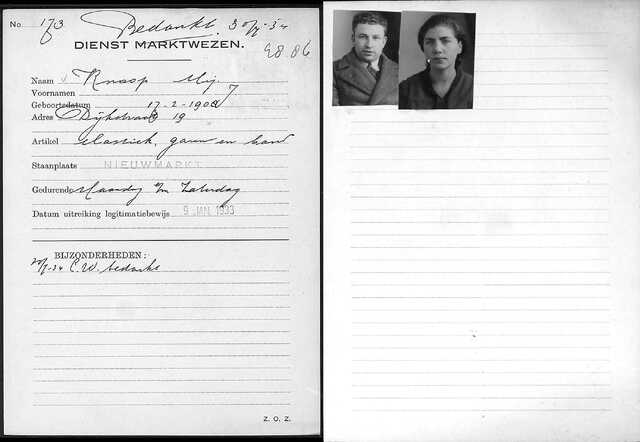 No. 173 Bedankt 30/7-34
DIENST MARKTWEZEN.
E8.86
Naam Knasp Mij
Voornamen
Geboortedatum 17-2-1900
Adres Dijkstraat 19
Artikel elastiek, garen en band
Staanplaats NIEUWMARKT
Gedurende Maandag t/m Zaterdag
Datum uitreiking legitimatiebewijs 9 JAN. 1933
BIJZONDERHEDEN:
30/7-34 C.W. bedankt
Z. O. Z.